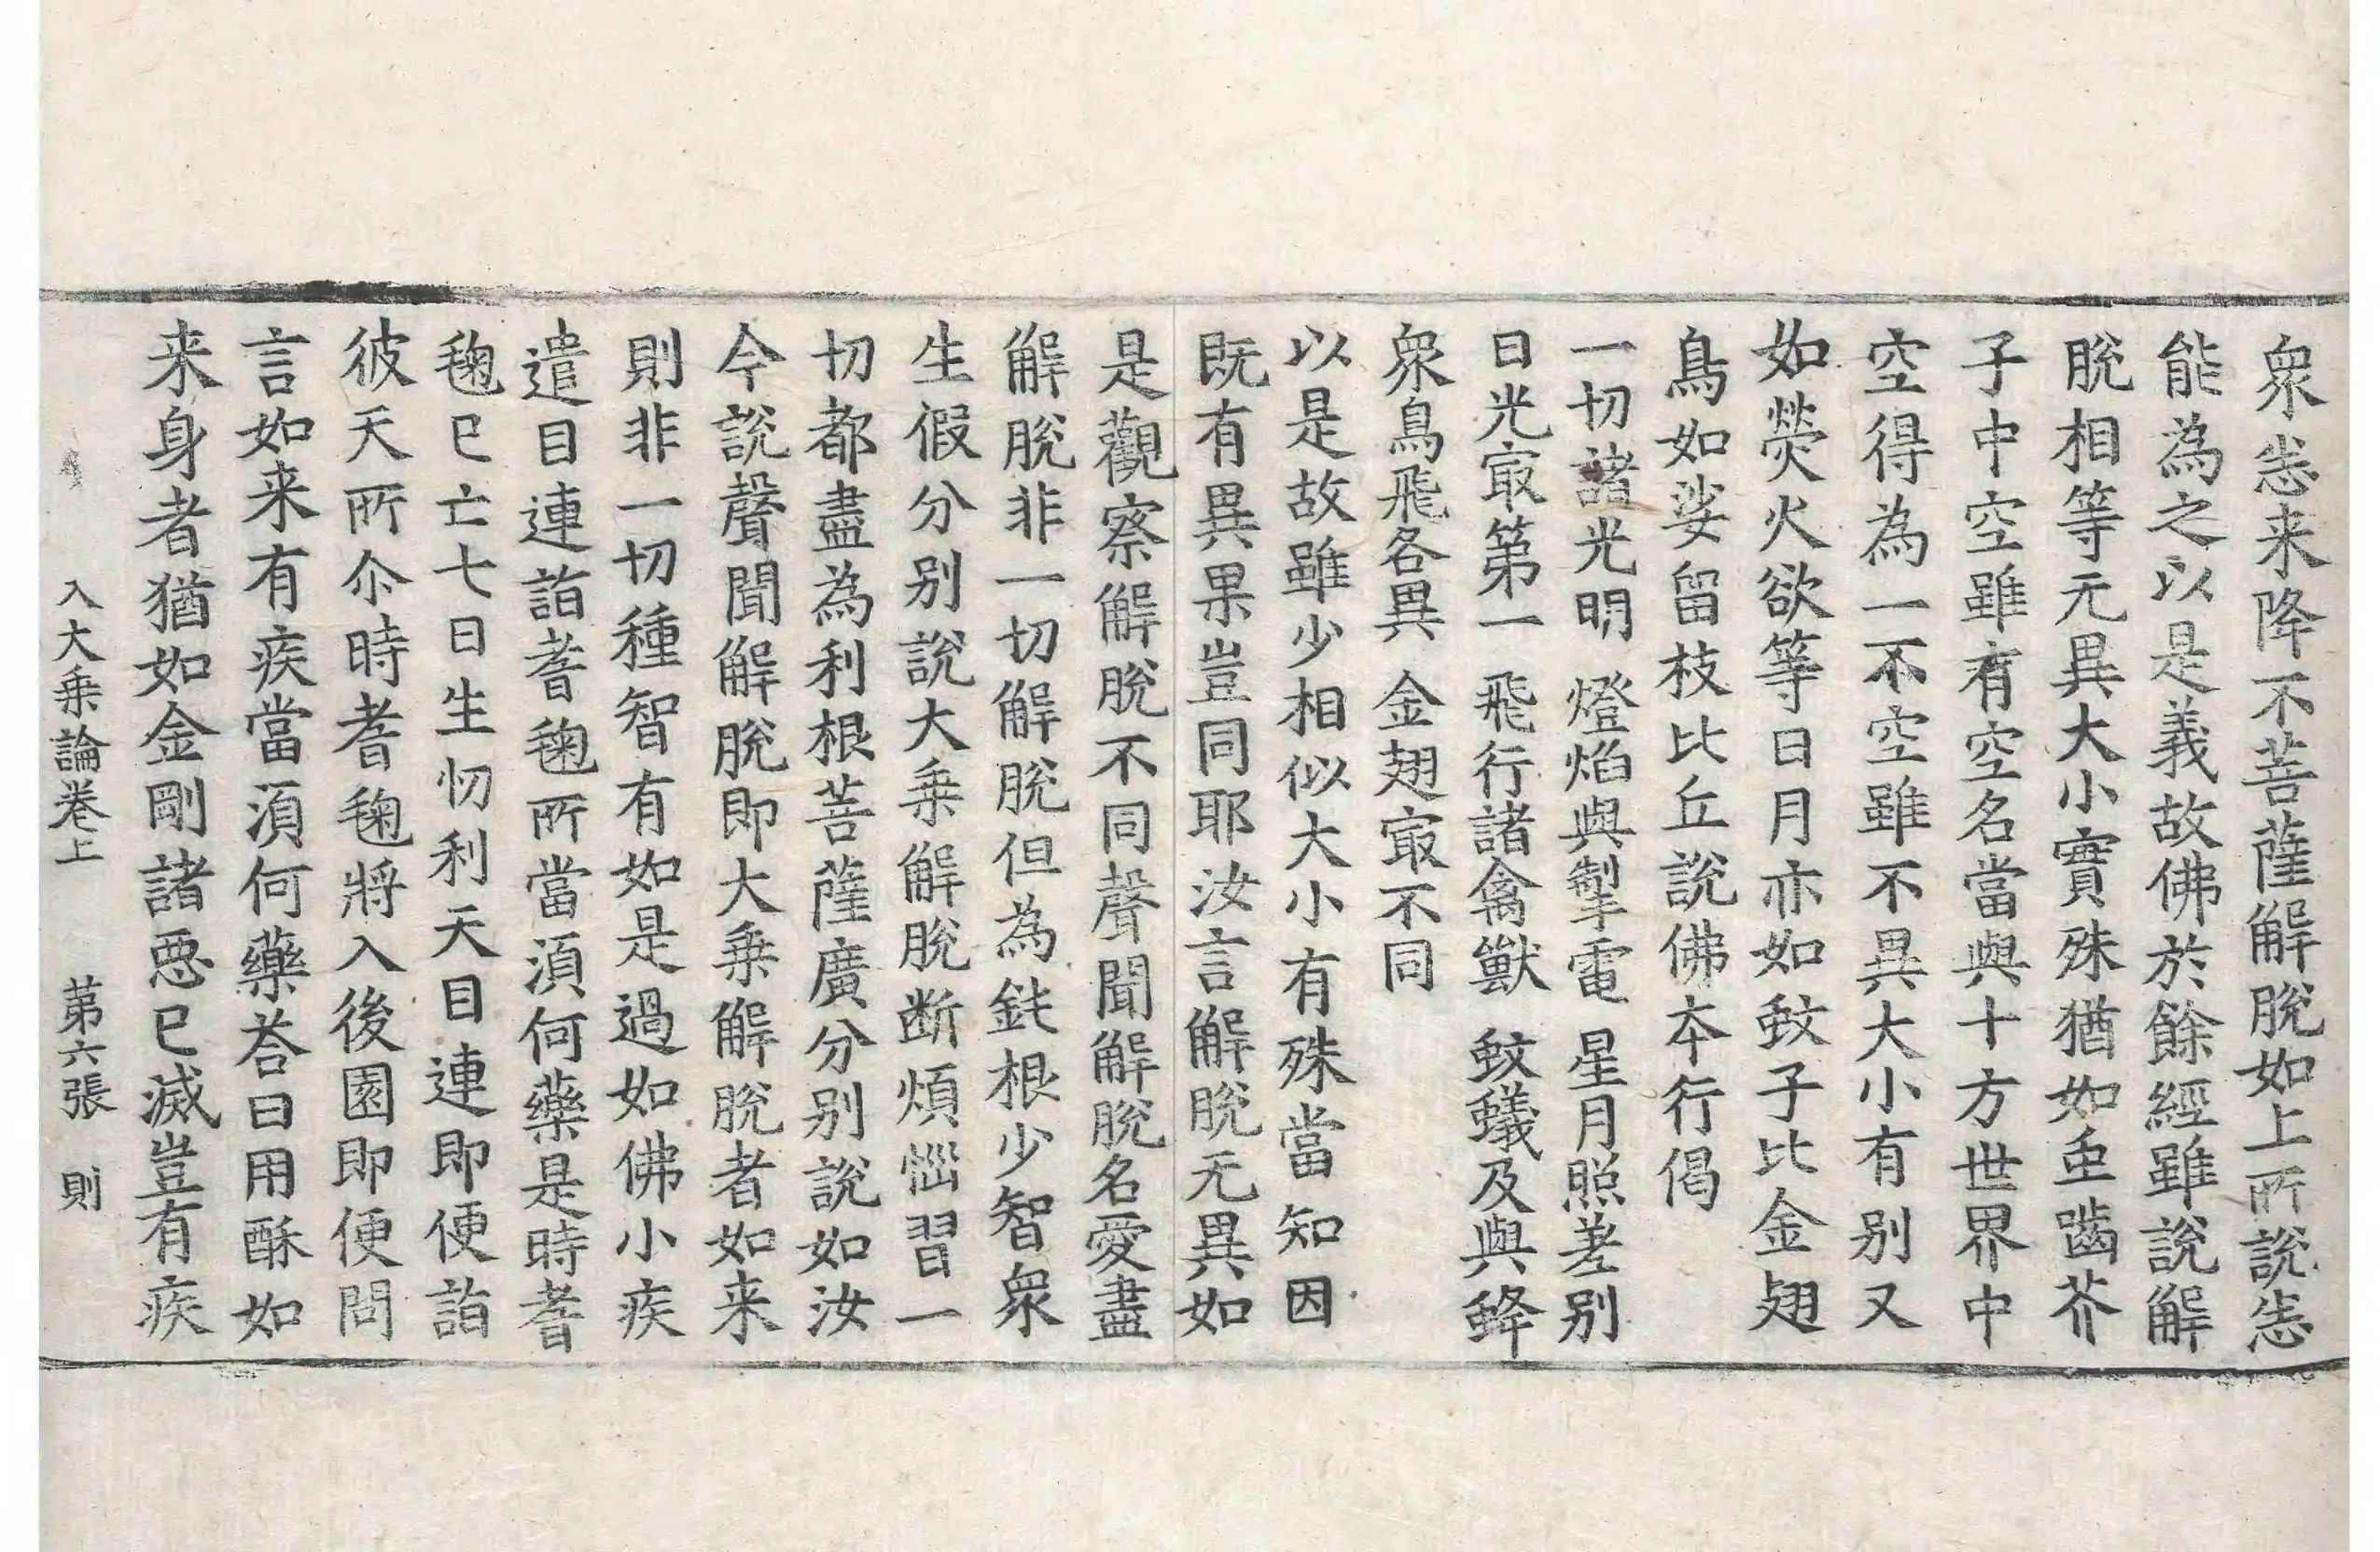 衆恙来降不菩薩解脫如上所說恙
能為之以是義故佛於餘經雖說解
脫相等无異大小實殊猶如䖝齧芥
子中空雖有空名當與十方世界中
空得為一不空雖不異大小有別又
如熒火欲等日月亦如蚊子比金翅
鳥如娑留枝比丘說佛本行偈
一切諸光明 燈焰與掣電 星月照差別
日光㝡第一 飛行諸禽獸 蚊蟻及與蜂
衆鳥飛各異 金翅㝡不同
以是故雖少相似大小有殊當知因
既有異果豈同耶汝言解脫无異如
是觀察解脫不同聲聞解脫名愛盡
解脫非一切解脫但為鈍根少智衆
生假分別說大乗解脫断煩惱習一
切都盡為利根菩薩廣分別說如汝
今說聲聞解脫即大乗解脫者如来
則非一切種智有如是過如佛小疾
遣目連詣耆毱所當湏何藥是時耆
毱已亡七日生忉利天目連即便詣
彼天所尒時耆毱將入後園即便問
言如来有疾當湏何藥荅曰用酥如
来身者猶如金剛諸惡已滅豈有疾
入大乗論卷上 第六張 則